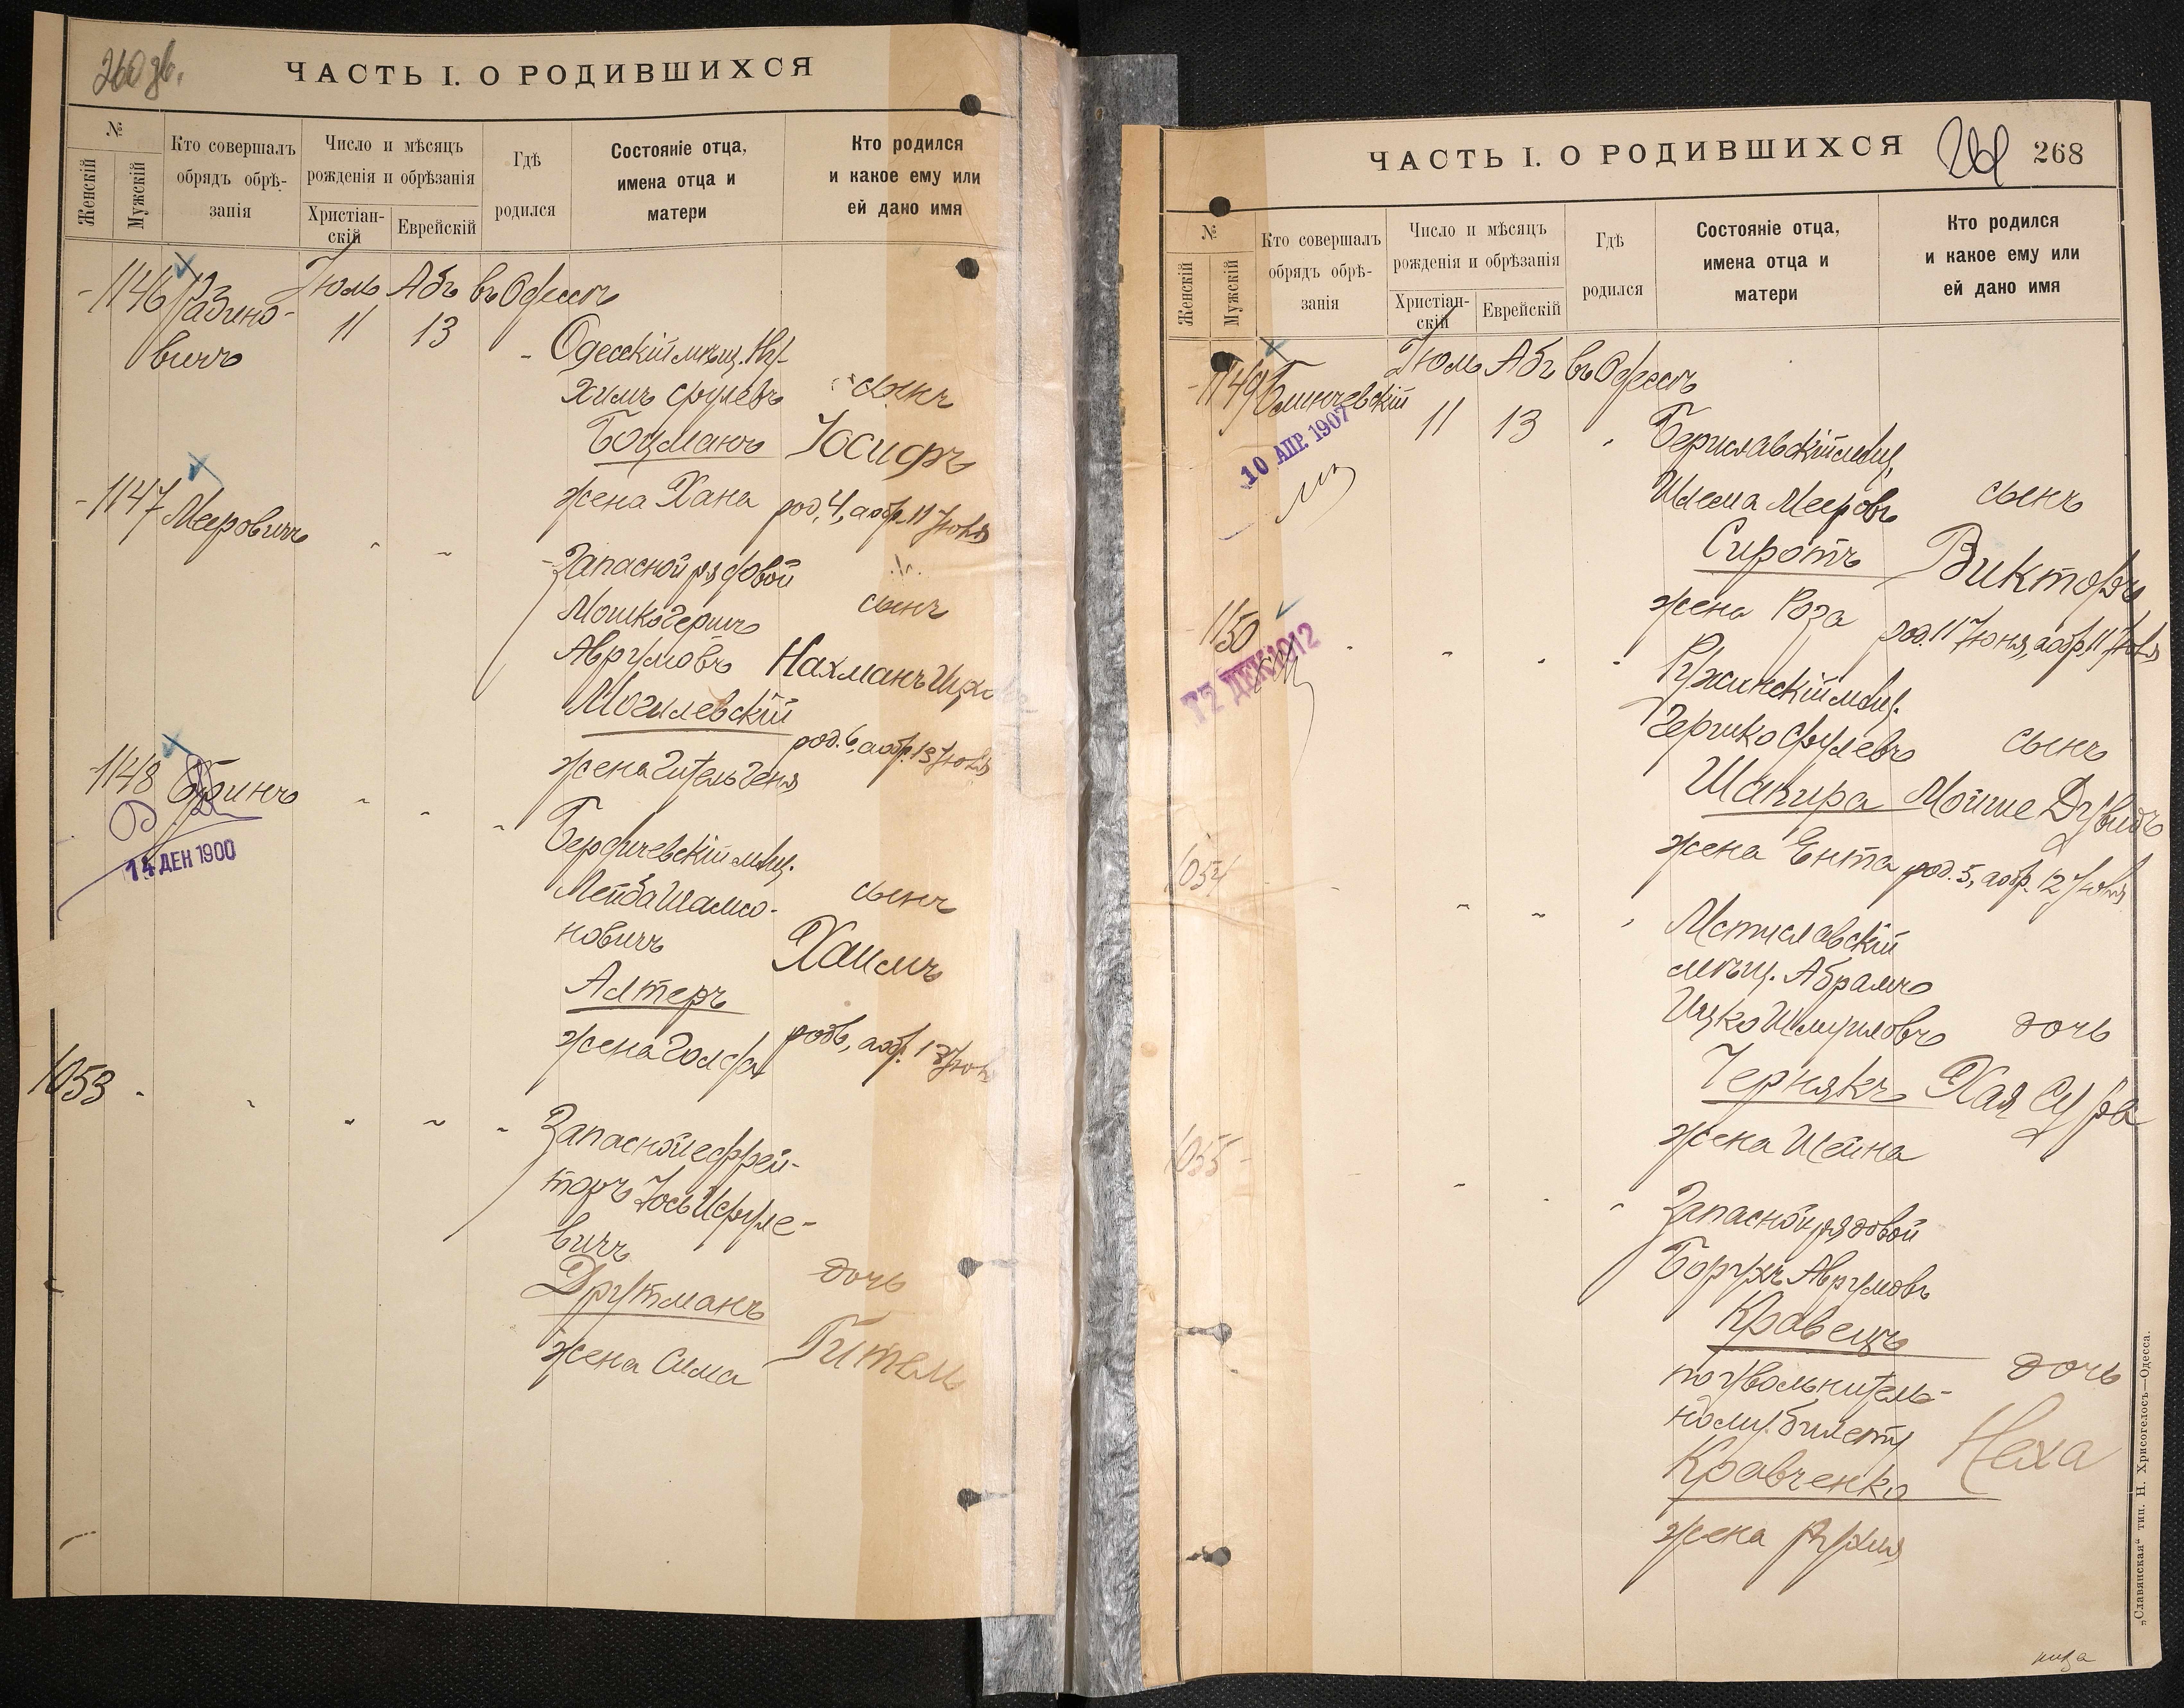 260 зв.
ЧАСТЬ I. О РОДИВШИХСЯ
№
Женскій
Мужскій
Кто совершалъ
обрядъ обрѣ-
занія
Число и мѣсяцъ
рожденія и обрѣзанія
Христіан-
скій
Еврейскій
Гдѣ
родился
Состояніе отца,
имена отца и
матери
Кто родился
и какое ему или
ей дано имя
Іюль Абъ въ Одессѣ
1146 Рабино-
вичъ
11 13
Одесскій мѣщ.
химъ Срулевъ сынъ
Боцманъ Іосифъ
жена Хана род. 4, а обр. 11 Іюля
1147 Мееровичъ
Запасной рядовой
Мошко Гершъ сынъ
Аврумовъ Нахманъ
Могилевскій
род. 6, а обр. 13 Іюля
жена Гитель Геня
1148 Гринъ
14 ДЕН 1900
Бердичевскій мѣщ.
Лейба Шамсо- сынъ
новичъ Хаимъ
Алтеръ
жена Голда а обр. 13
1053
Запасной ефрей-
торъ Іось Исруле-
вичъ
Друтманъ дочь
жена Сима Гитель
ЧАСТЬ I. О РОДИВШИХСЯ
268
№
Женскій
Мужскій
Кто совершалъ
обрядъ обрѣ-
занія
Число и мѣсяцъ
рожденія и обрѣзанія
Христіан-
скій
Еврейскій
Гдѣ
родился
Состояніе отца,
имена отца и
матери
Кто родился
и какое ему или
ей дано имя
Іюль Абъ въ Одессѣ
1149
11 13
10 АПР. 1907
Бериславскій мѣщ.
Шлема Мееровъ сынъ
Сиротъ Викторъ
жена Роза род. 11 Іюня, а обр. 11 Іюля
1150
12 ДЕК 1912
Ружинскій мѣщ.
Гершко Срулевъ сынъ
Шапира Мойше Дувидъ
жена Ента род. 5, а обр. 12 Іюля
1054
Мстиславскій
мѣщ. Абрамъ
Ицко Шмуиловъ дочь
Чернякъ Хая Сура
жена Шейна
1055
Запасной рядовой
Борухъ Аврумовъ
Кравецъ
по увольнитель- дочь
ному билету
Кравченко Неха
жена Рухля
„Славянская“ тип. Н. Хрисогелосъ—Одесса.